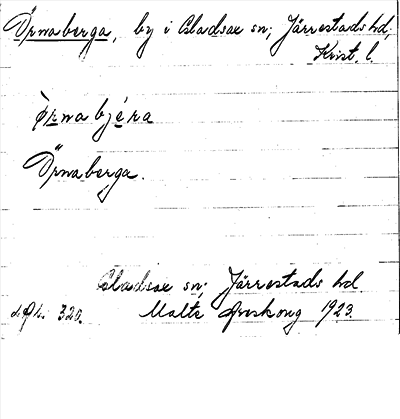 Örnaberga, by i Gladsax sn; Järrestads hd,
Krist. l.
Ö̀rnabjéra
Örnaberga.
Gladsax sn; Järrestads hd.
320. Malte Areskoug 1923.